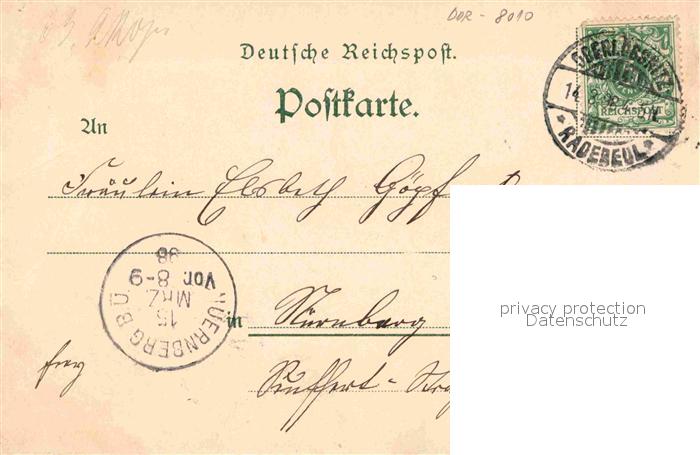 DDR - 8010
Deutsche Reichspost.
Postkarte.
An
OBERLÖSSNITZ
14. 3.
REICHSPOST
* RADEBEUL *
Fräulein Elsbeth Göpf
privacy protection
Datenschutz
NUERNBERG B.Ü.
15
MRZ.
Vor. 8-9
98
in Nürnberg
frey